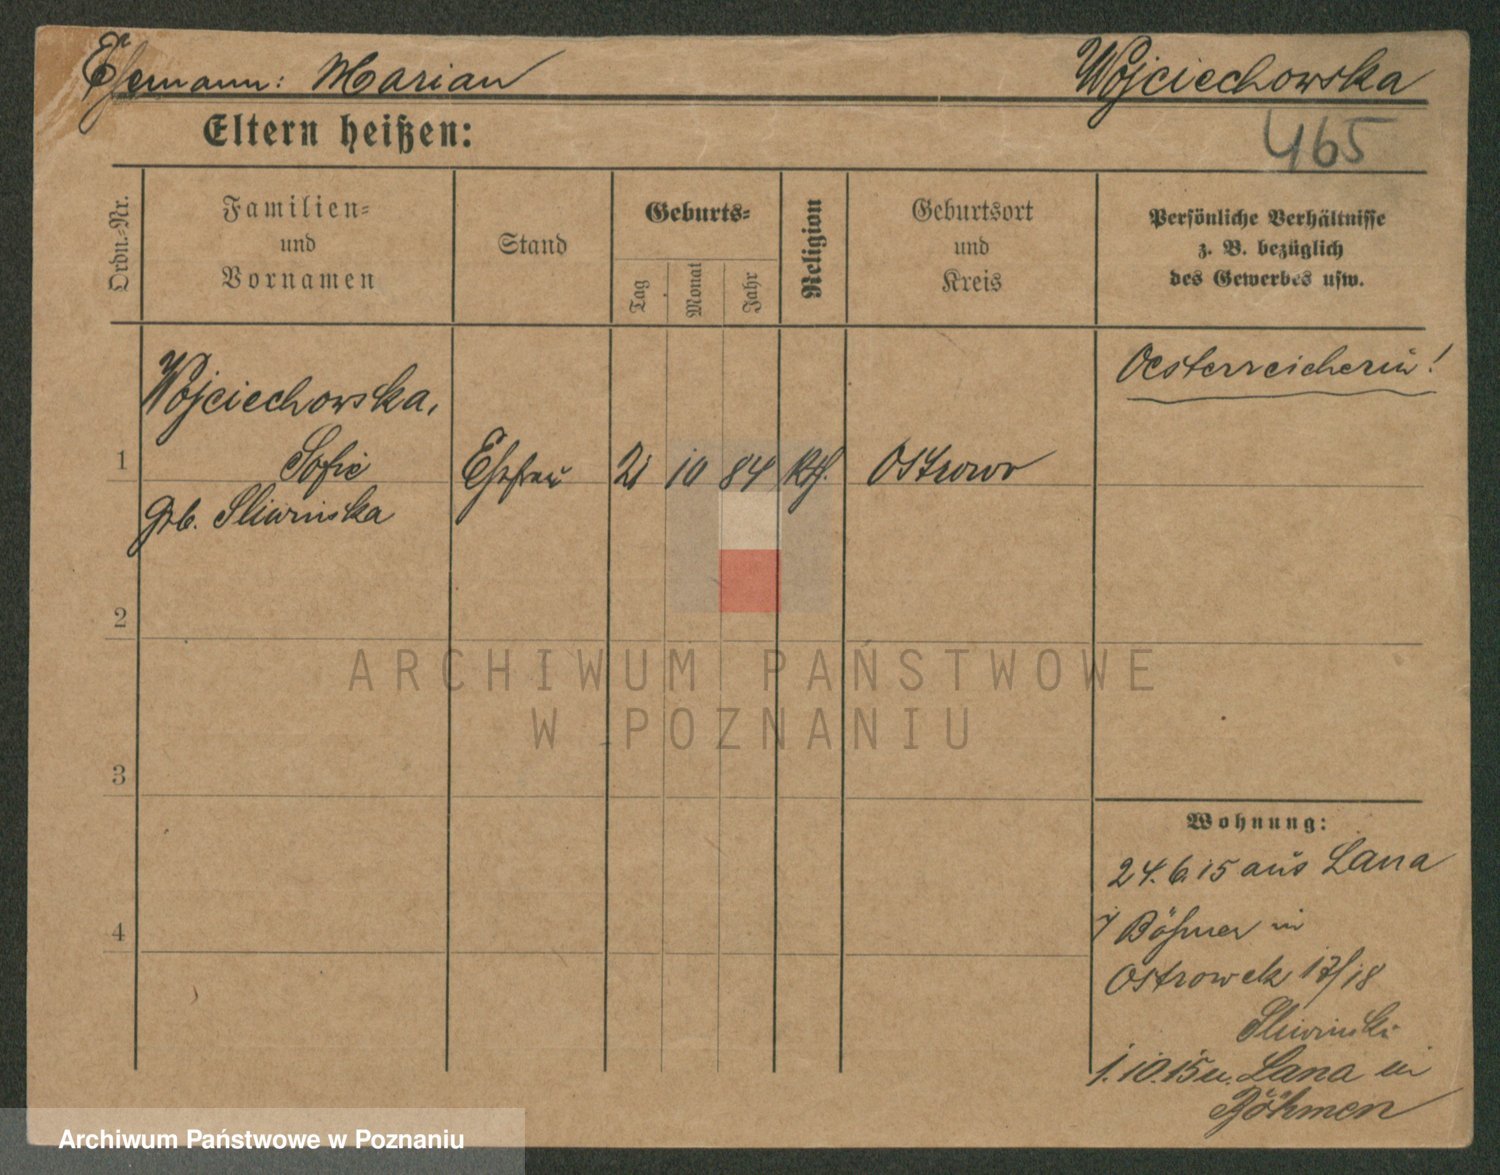 Ehemann: Marian Wojciechowska
Eltern heißen:
465
Ordn.-Nr.
Familien-
und
Vornamen
Stand
Geburts-
Tag
Monat
Jahr
Religion
Geburtsort
und
Kreis
Persönliche Verhältnisse
z. B. bezüglich
des Gewerbes usw.
Oesterreicherin!
Wojciechowska,
1 Sofie Ehefrau 21 10 84 kth. Ostrowo
geb. Sliwinska
2
ARCHIWUM PAŃSTWOWE
W POZNANIU
3
Wohnung:
24.6.15 aus Lana
i/ Böhmen in
4
Ostrowek 17/18
Sliwinski
1.10.15 n. Lana in
Böhmen
Archiwum Państwowe w Poznaniu